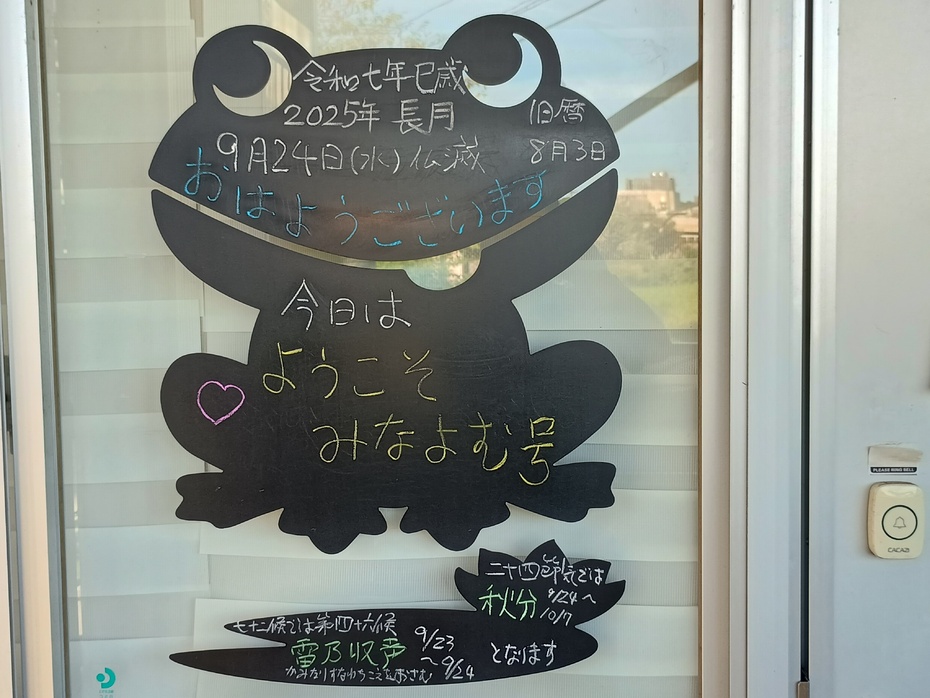 令和七年巳歳
2025年 長月
旧暦
9月24日(水)仏滅
8月3日
おはようございます
今日は
ようこそ
みなよむ号
二十四節気では
秋分 9/24〜10/7
七十二候では第四十六候
雷乃収声 9/23〜9/24
かみなりすなわちこえをおさむ
となります
PLEASE RING BELL
CACAZI